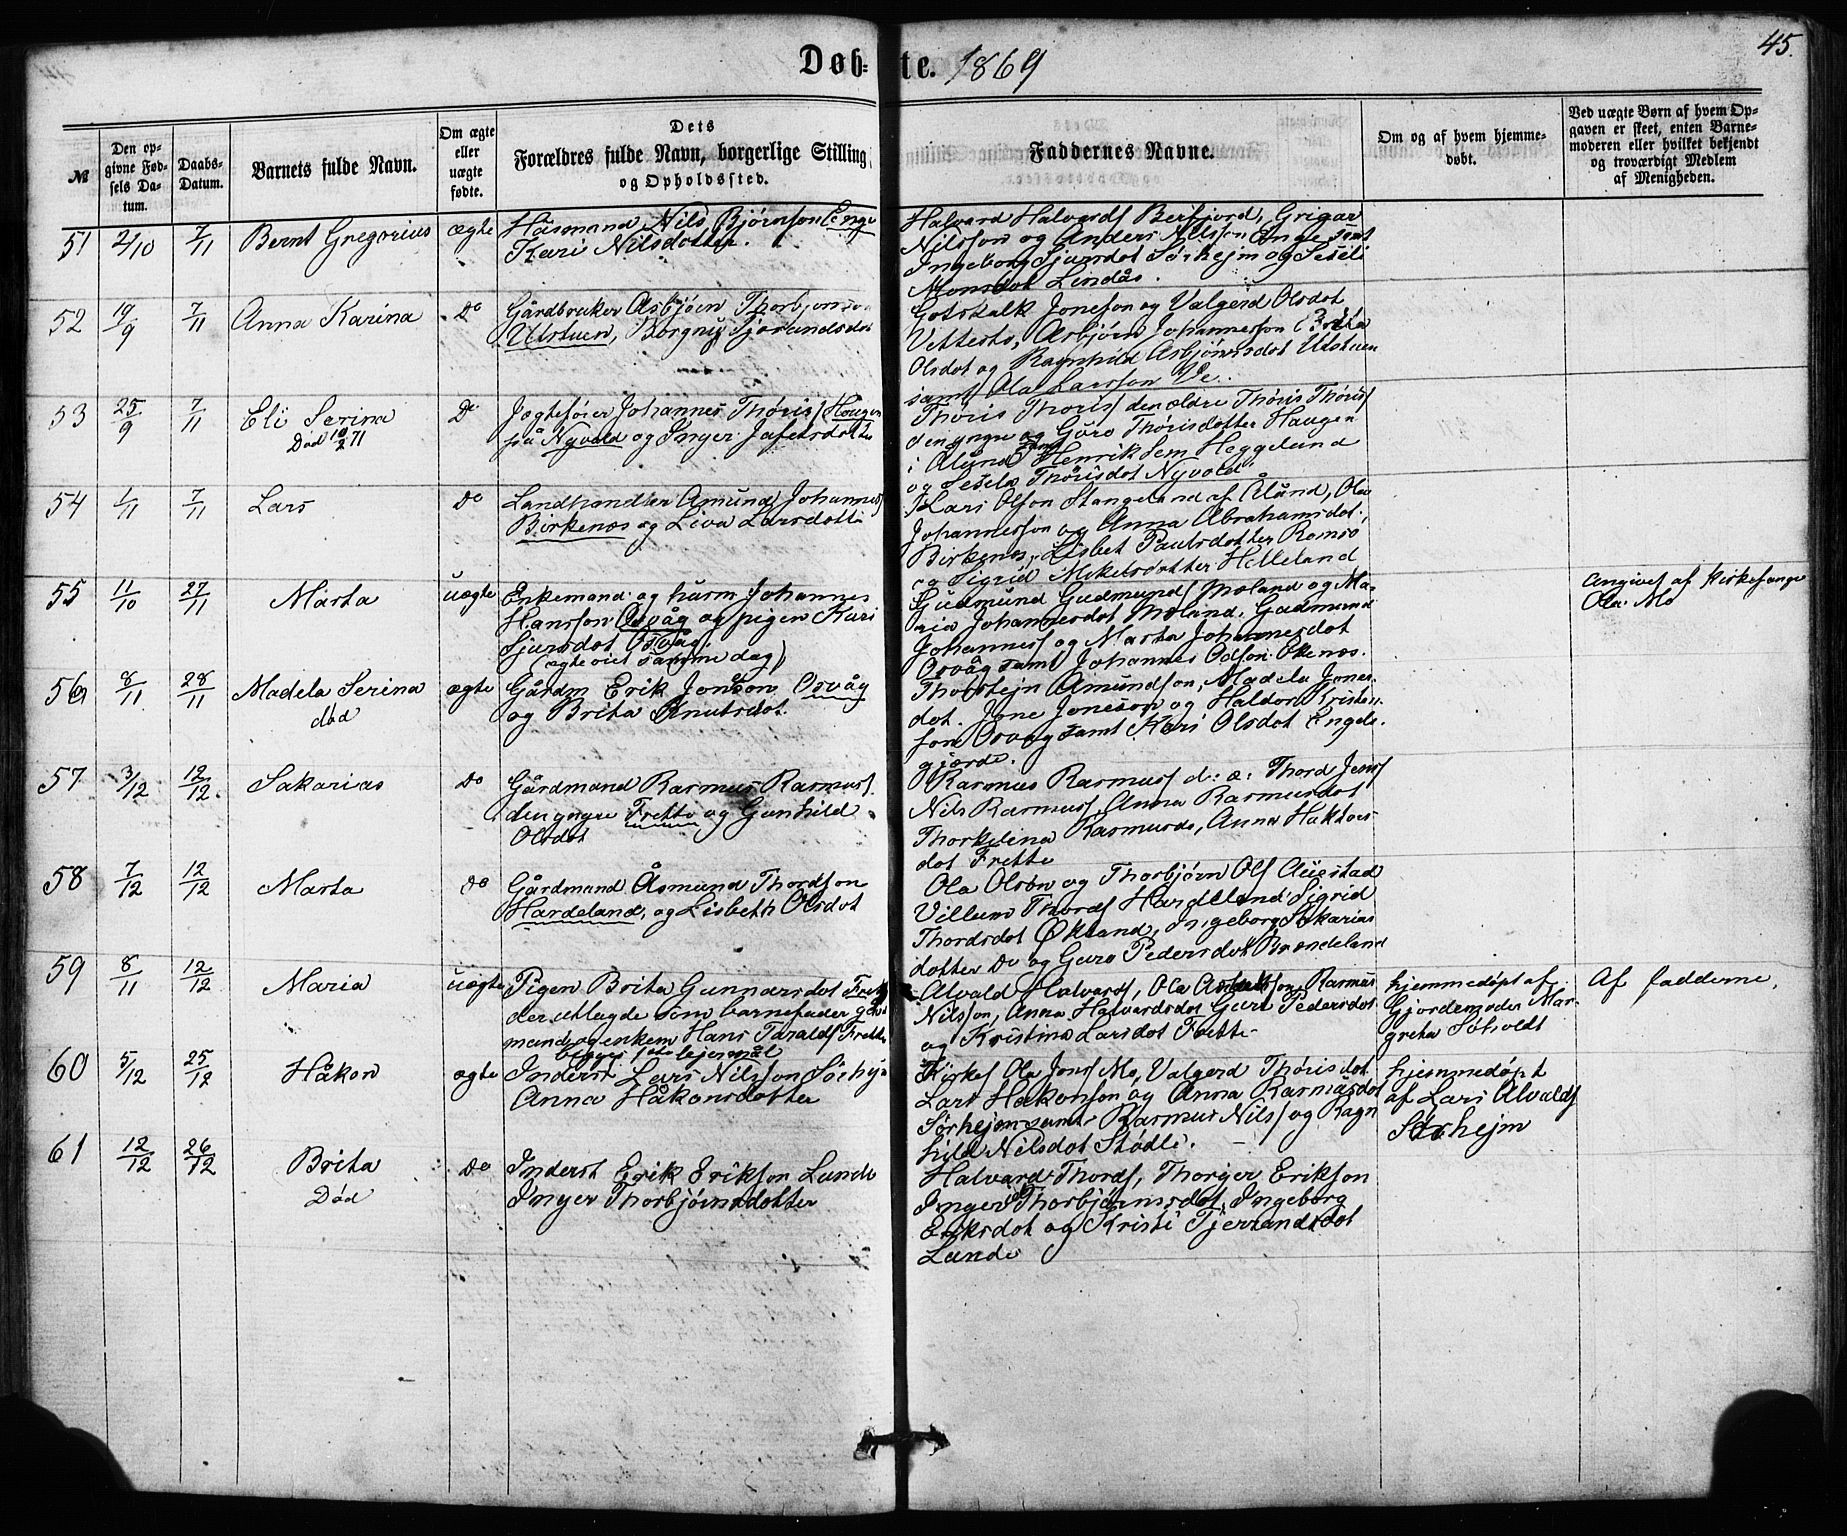 45.
Døbte. 1869
№
Den opgivne Fødsels Datum.
Daabs-Datum.
Barnets fulde Navn.
Om ægte eller uægte fødte.
Dets Forældres fulde Navn, borgerlige Stilling og Opholdssted.
Faddernes Navne.
Om og af hvem hjemmedøbt.
Ved uægte Børn af hvem Opgaven er skeet, enten Barnemoderen eller hvilket bekjendt og troværdigt Medlem af Menigheden.
51 2/10 7/11 Bernt Gregorius ægte
Håsmand Nils Bjørnson Enge
Kari Nilsdotter.
Halvard Halvards Berfjord, Grigar
Nilsson og Anders Nilsson Enge samt
Ingeborg Sjursdot Sørhejm og Seseli
Monsdot Lindås.
52 19/9 7/11 Anna Karina Do
Gårdbruker Asbjøen Thorbjørnson
Utstuen, Borgny Tjerandsdot
Gotskalk Joneson og Valgerd Olsdot
Vettestø, Asbjørn Johannesson Brita
Olsdot og Ragnhild Asbjørnsdot Utstuen
samt Ola Larsson Ve.
53 25/9 7/11 Eli Serina Do
Død 10/2 71
Jagtefører Johannes Thøris Haugen
på Nyvold og Inger Jafetsdotter
Thøris Thøris den ældre Thøris Thøris
den yngre og Gúro Thørisdotter Haugen
i Ølund samt Henrik Sem Heggeland
og Sesela Thørisdot Nyvold.
54 1/11 7/11 Lars Do
Landhandler Amund Johannes
Birkenes og Liva Larsdotte
Lars Olson Stangeland af Ølund, Ola
Johannesson og Anna Abrahamsdot.,
Birkenes, Lisbet Paulsdotter Romsø
og Sigrid Mikelsdotter Helleland
55 11/10 27/11 Márta uægte
Enkemand og húsm Johannes
Hansson Osvåg og pigen Kari
Sjursdot Osvåg.
(ægteviet samme dag)
Gudmúnd Gudmunds Moland og Ma-
ria Johannesdot Moland, Gudmund
Johannes og Marta Johannesdot
Osvåg samt Johannes Odson Økenes.
Angivet af Kirkesanger
Ola Mo
56 8/11 28/11 Madela Serina ægte
død
Gårdm Erik Jonsson Osvåg
og Brita Knutsdot.
Thorstejn Amundson, Madela Jones-
dot. Jone Joneson og Haldor Kristen-
son Osvåg samt Kari Olsdot Engels-
gjærde.
57 3/12 12/12. Sakarias Do
Gårdmand Rasmus Rasmus
den yngre Frette og Gunhild
Olsdot
Rasmus Rasmus d: æ: Thord Jens
Nils Rasmus, Anna Rasmusdot
Thorkelina Rasmusd, Anna Haktors-
dot Frette
58 7/12 12/12 Marta Do
Gårdmand Åsmund Thordson
Hardeland, og Lisbeth Olsdot
Ola Olson og Thorbjørn Ols Auestad
Villum Thords Hardeland Sigrid
Thordsdot Økland, Ingeborg Sakarias
dotter Do og Guro Pedersdot Brændeland
59 8/11 12/12 Maria uægte
Pigen Brita Gunnarsdot Frette
der utlagde som barnefader gård
mand og enkem Hans Taralds Frette
begges 1ste lejermål
Alvald Halvards, Ola Rasmus
Nilsson, Anna Halvardsdot Guri Pedersdot
og Kristina Larsdot Frette
hjemmedøpt af
Gjordemoder Mar-
greta Søtvedt
Af fadderne.
60 5/12 25/12 Håkon ægte
Inderst Lars Nilsson Sørhejm
Anna Håkonsdotter
Kirkes Ola Jons Mo, Valgerd Thørisdot
Lars Håkonson og Anna Rasmusdot
Sørhejm samt Rasmus Nils og Ragn
hild Nilsdot Stødle.
hjemmedøpt
af Lars Alvalds
Sørhejm
61 12/12 26/12 Brita Do
Død
Inderst Erik Erikson Lunde
Inger Thorbjørnsdotter
Halvard Thords, Thorger Erikson
Inger Thorbjørnsdot, Ingeborg
Eriksdot og Kristi Tjerrandsdot
Lunde